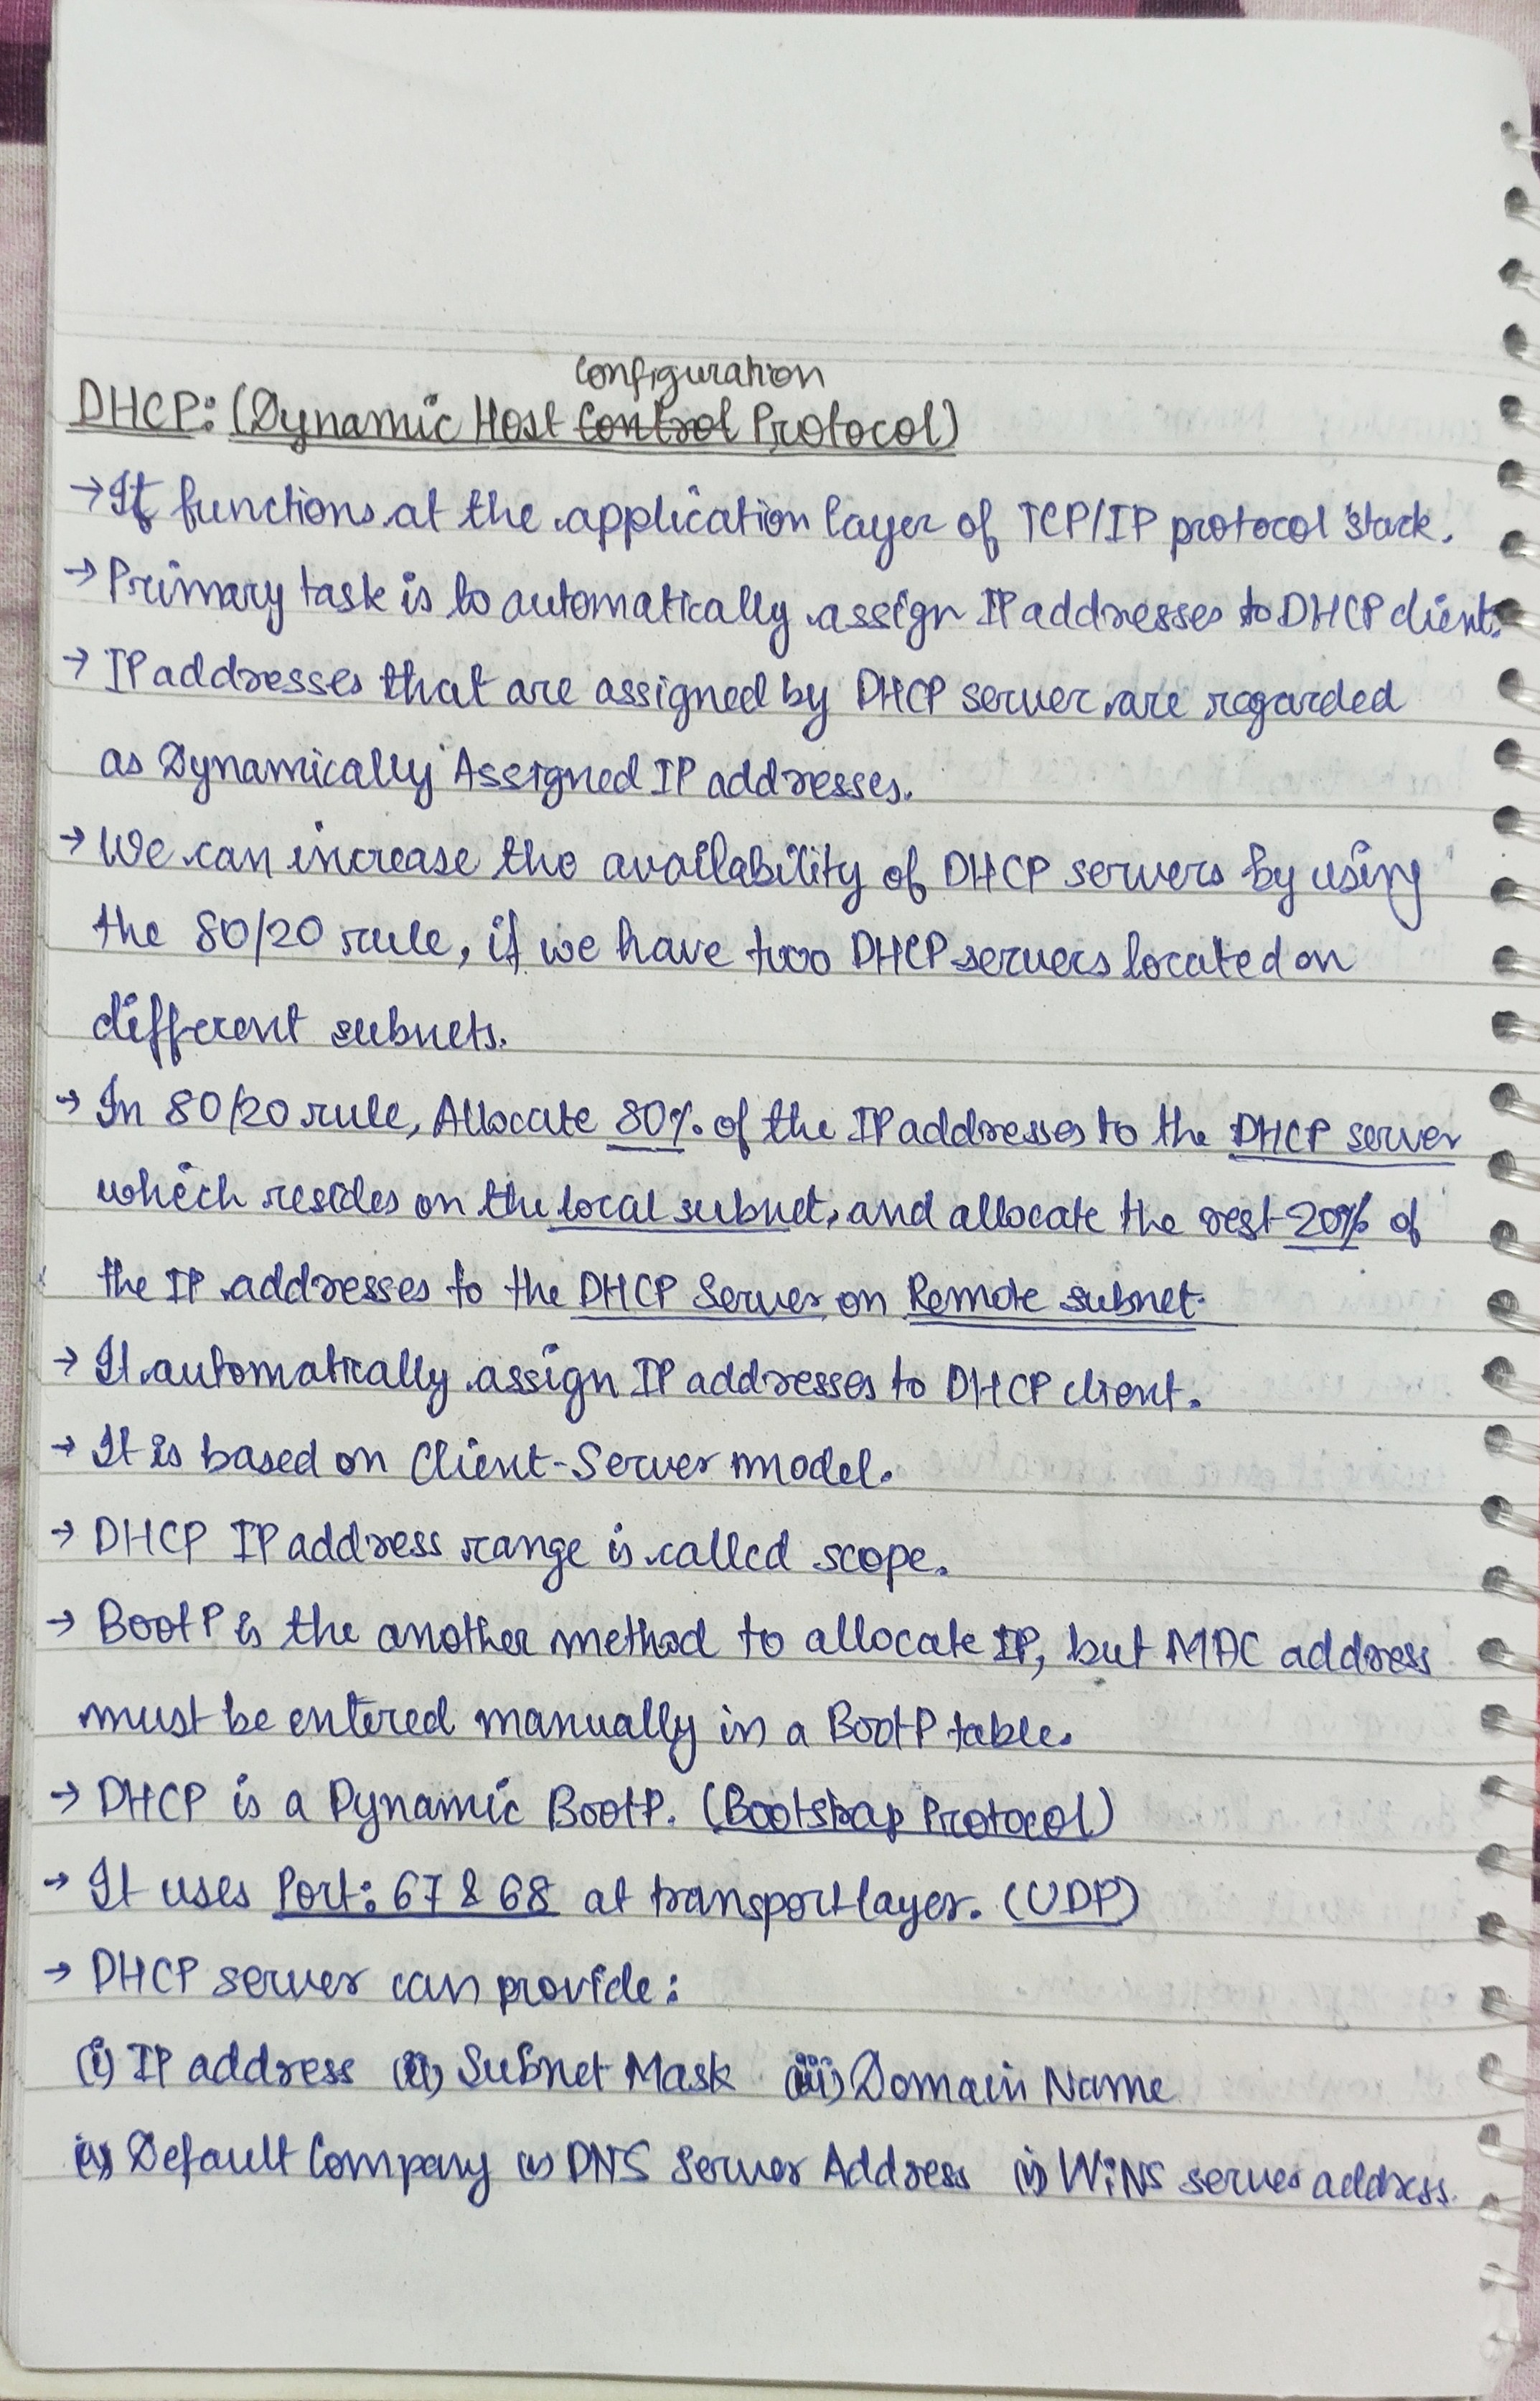 DHCP: (Dynamic Host Configuration Protocol)
→ It functions at the application layer of TCP/IP protocol stack.
→ Primary task is to automatically assign IP addresses to DHCP client.
→ IP addresses that are assigned by DHCP server are regarded
as Dynamically Assigned IP addresses.
→ We can increase the availability of DHCP servers by using
the 80/20 rule, if we have two DHCP servers located on
different subnets.
→ In 80/20 rule, Allocate 80% of the IP addresses to the DHCP server
which resides on the local subnet, and allocate the rest 20% of
the IP addresses to the DHCP Server on Remote subnet.
→ It automatically assign IP addresses to DHCP client.
→ It is based on Client-Server model.
→ DHCP IP address range is called scope.
→ BootP is the another method to allocate IP, but MAC address
must be entered manually in a BootP table.
→ DHCP is a Dynamic BootP. (Bootstrap Protocol)
→ It uses Port: 67 & 68 at transport layer. (UDP)
→ DHCP server can provide:
(i) IP address (ii) Subnet Mask (iii) Domain Name
(iv) Default Company (v) DNS Server Address (vi) WiNS server address.